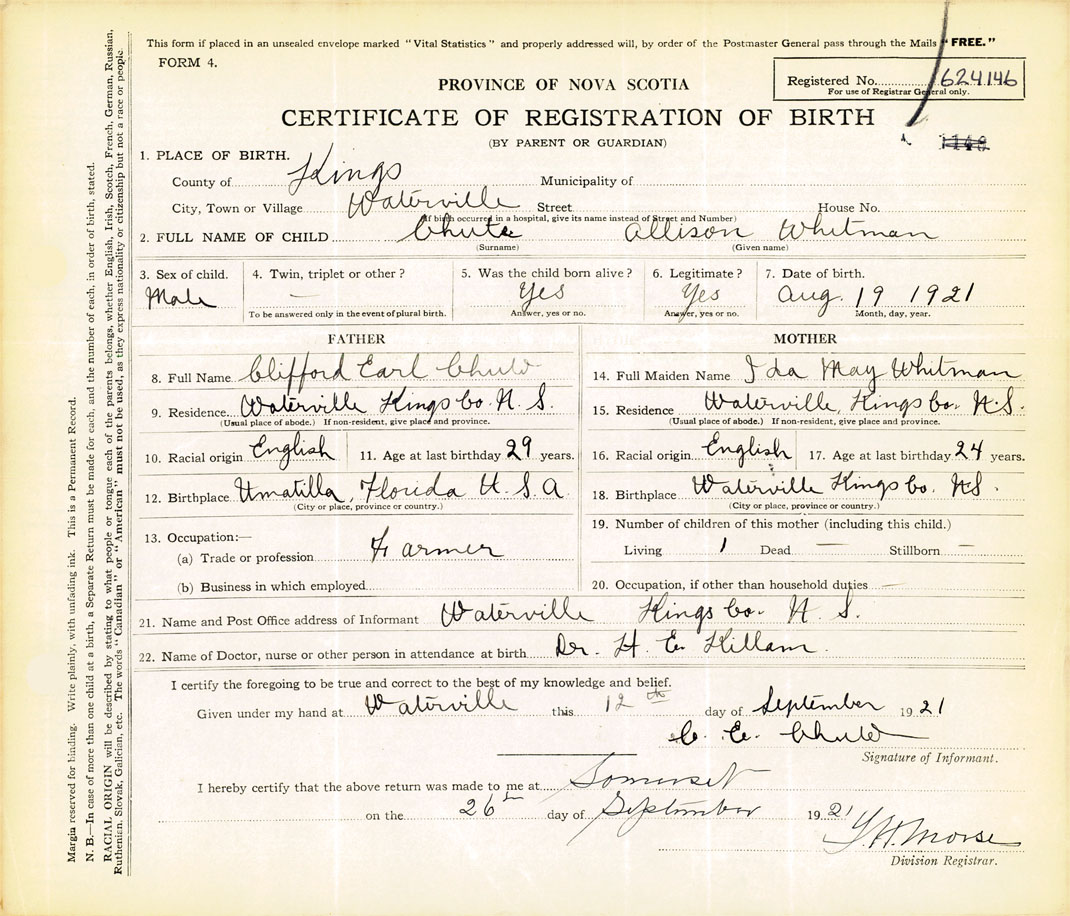 This form if placed in an unsealed envelope marked "Vital Statistics" and properly addressed will, by order of the Postmaster General pass through the Mails "FREE."
FORM 4.
Registered No. 624146
For use of Registrar General only.
PROVINCE OF NOVA SCOTIA
CERTIFICATE OF REGISTRATION OF BIRTH
(BY PARENT OR GUARDIAN)
1. PLACE OF BIRTH.
County of Kings Municipality of
City, Town or Village Waterville Street House No.
(If birth occurred in a hospital, give its name instead of Street and Number)
2. FULL NAME OF CHILD Chute Allison Whitman
(Surname) (Given name)
3. Sex of child. Male
4. Twin, triplet or other? —
To be answered only in the event of plural birth.
5. Was the child born alive? Yes
Answer, yes or no.
6. Legitimate? Yes
Answer, yes or no.
7. Date of birth. Aug. 19 1921
Month, day, year.
FATHER
8. Full Name Clifford Earl Chute
9. Residence Waterville Kings Co. N. S.
(Usual place of abode.) If non-resident, give place and province.
10. Racial origin English 11. Age at last birthday 29 years.
12. Birthplace Umatilla, Florida U. S. A
(City or place, province or country.)
13. Occupation:—
(a) Trade or profession Farmer
(b) Business in which employed
MOTHER
14. Full Maiden Name Ida May Whitman
15. Residence Waterville, Kings Co. N.S.
(Usual place of abode.) If non-resident, give place and province.
16. Racial origin English 17. Age at last birthday 24 years.
18. Birthplace Waterville Kings Co. N.S.
(City or place, province or country.)
19. Number of children of this mother (including this child.)
Living 1 Dead — Stillborn —
20. Occupation, if other than household duties —
21. Name and Post Office address of Informant Waterville Kings Co. N. S.
22. Name of Doctor, nurse or other person in attendance at birth Dr. H. E. Killam.
I certify the foregoing to be true and correct to the best of my knowledge and belief.
Given under my hand at Waterville this 12th day of September 1921
C. E. Chute
Signature of Informant.
I hereby certify that the above return was made to me at Somerset
on the 26th day of September 1921
Morse
Division Registrar.
Margin reserved for binding. Write plainly, with unfading ink. This is a Permanent Record.
N. B.—In case of more than one child at a birth, a Separate Return must be made for each, and the number of each, in order of birth, stated.
RACIAL ORIGIN will be described by stating to what people or tongue each of the parents belongs, whether English, Irish, Scotch, French, German, Russian,
Ruthenian, Slovak, Galician, etc. The words "Canadian" or "American" must not be used, as they express nationality or citizenship but not a race or people.